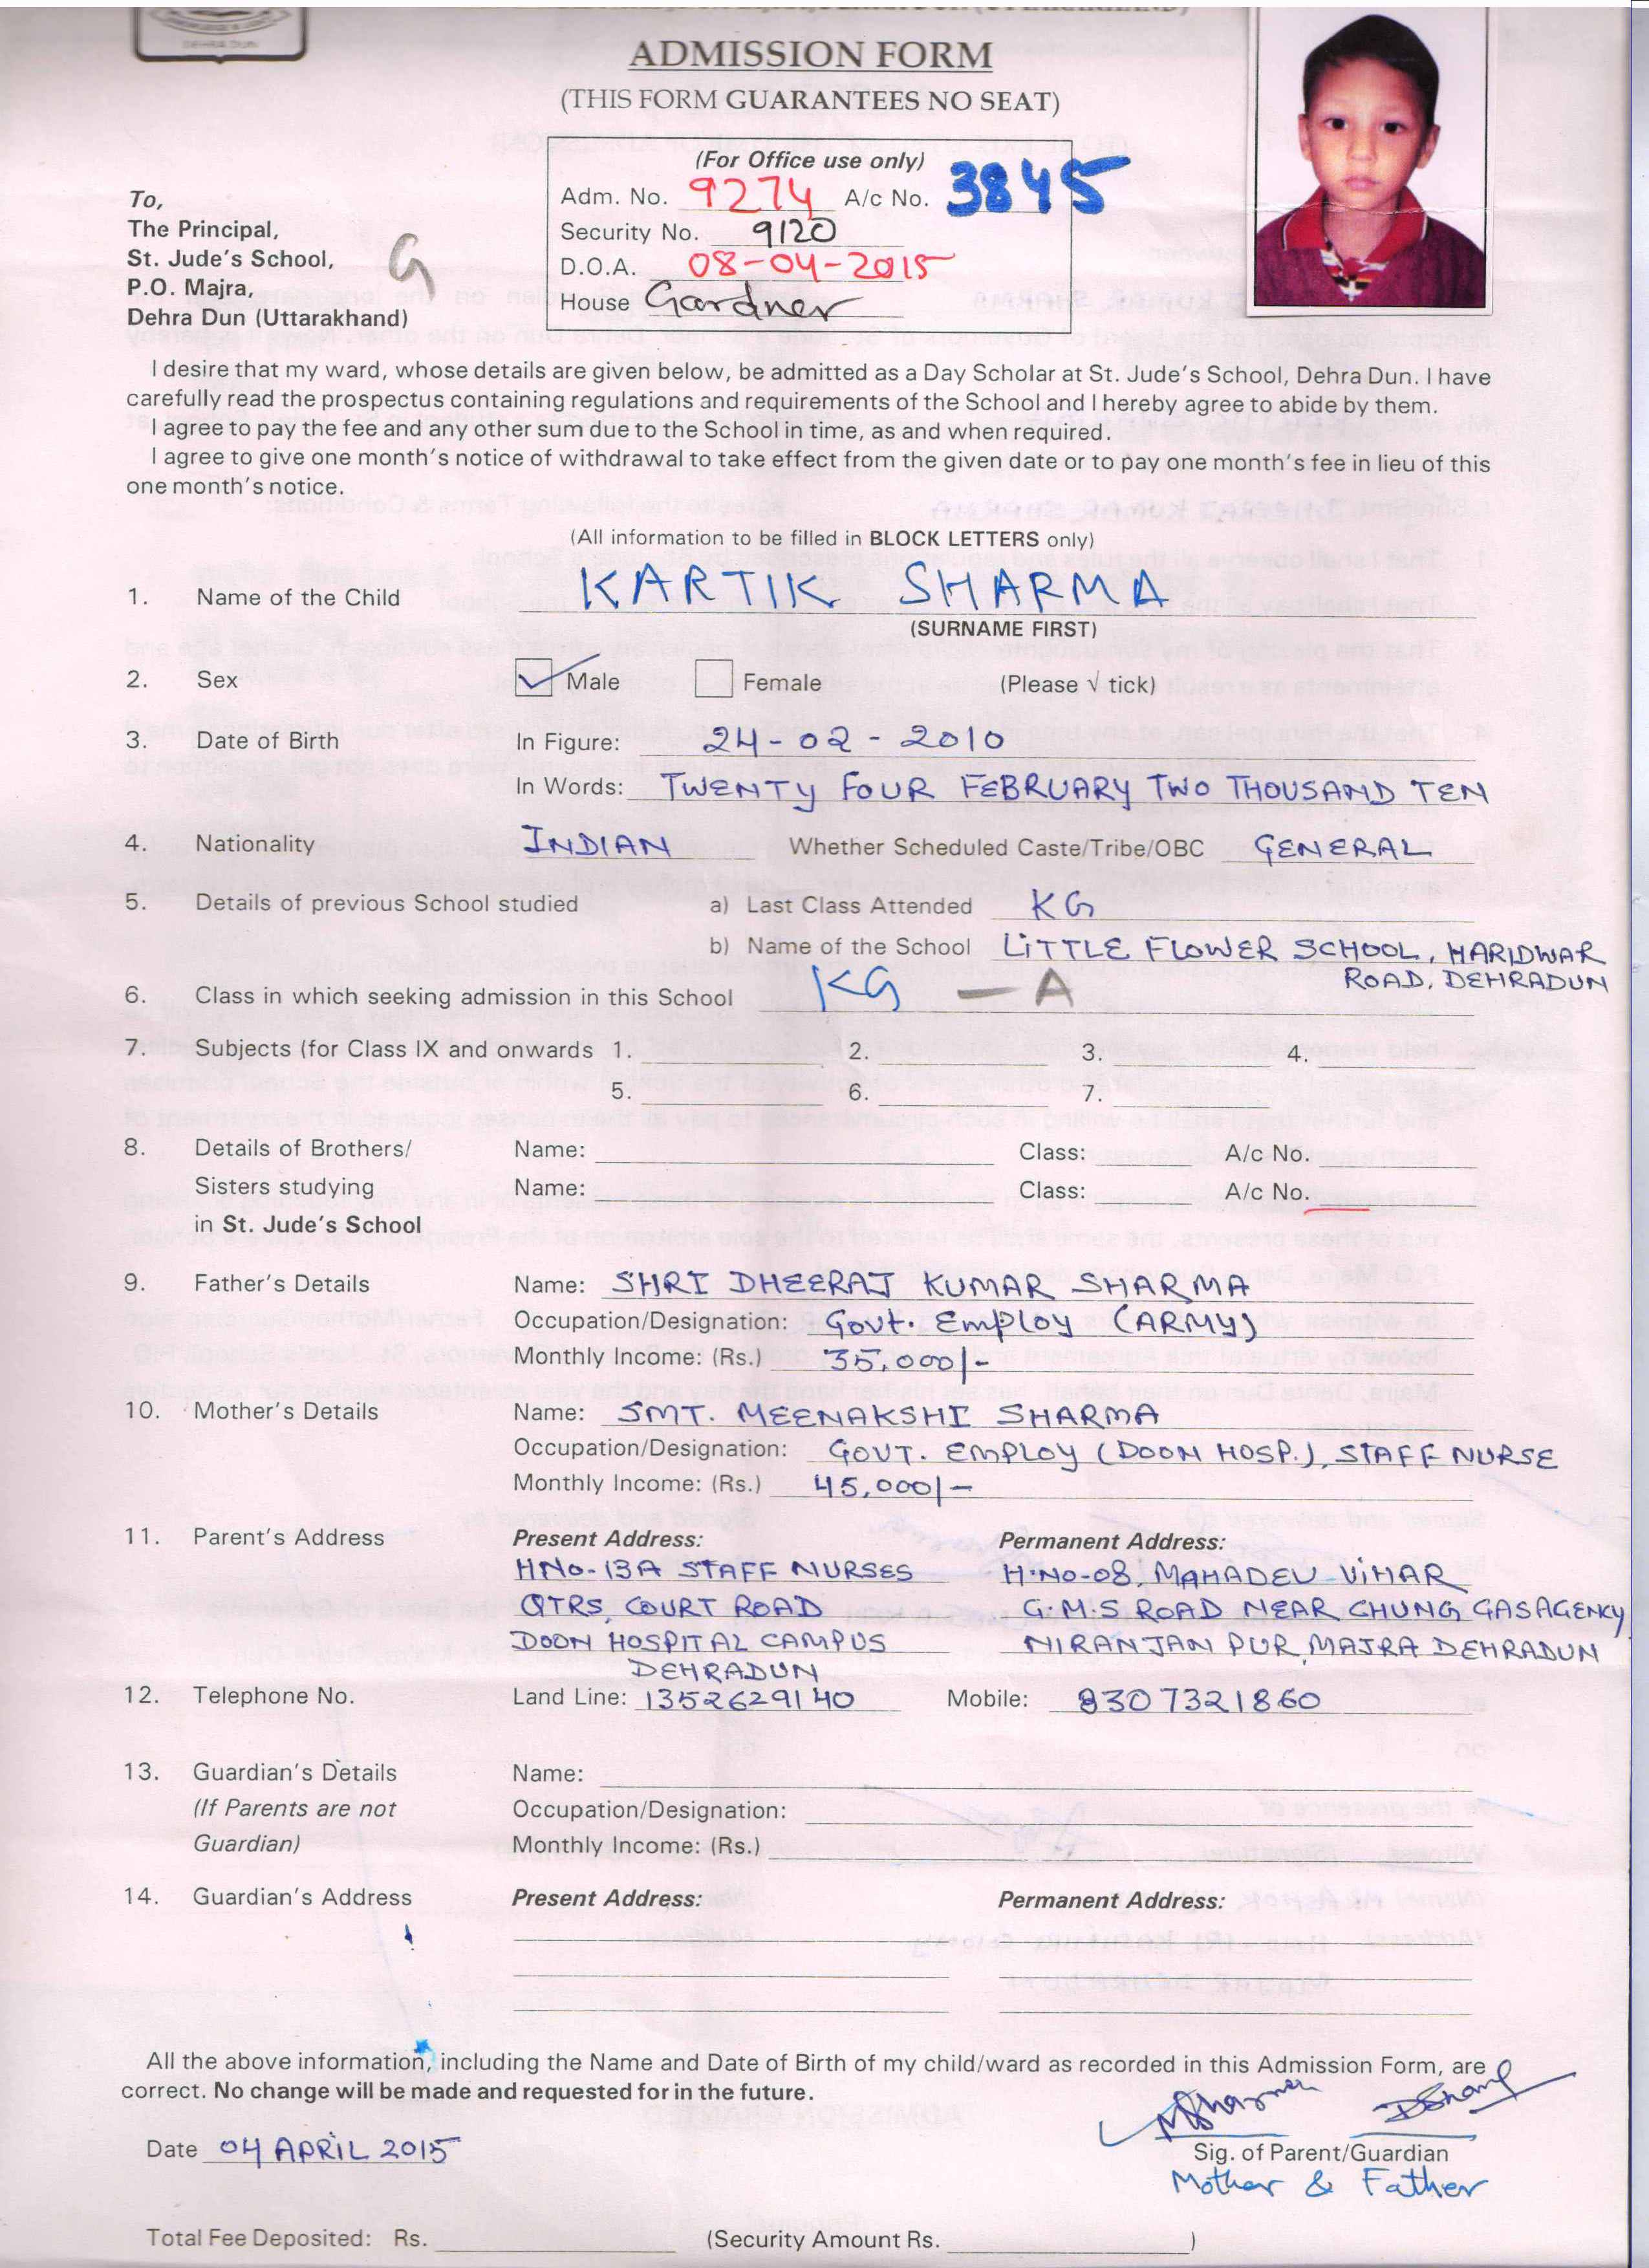 DEHRA DUN
ADMISSION FORM
(THIS FORM GUARANTEES NO SEAT)
(For Office use only)
Adm. No. 9274 A/c No. 3845
Security No. 9120
D.O.A. 08-04-2015
House Gardner
To,
The Principal,
St. Jude's School,
P.O. Majra,
Dehra Dun (Uttarakhand)
G
I desire that my ward, whose details are given below, be admitted as a Day Scholar at St. Jude's School, Dehra Dun. I have
carefully read the prospectus containing regulations and requirements of the School and I hereby agree to abide by them.
I agree to pay the fee and any other sum due to the School in time, as and when required.
I agree to give one month's notice of withdrawal to take effect from the given date or to pay one month's fee in lieu of this
one month's notice.
(All information to be filled in BLOCK LETTERS only)
1. Name of the Child KARTIK SHARMA
(SURNAME FIRST)
2. Sex Male Female (Please √ tick)
3. Date of Birth In Figure: 24-02-2010
In Words: TWENTY FOUR FEBRUARY TWO THOUSAND TEN
4. Nationality INDIAN Whether Scheduled Caste/Tribe/OBC GENERAL
5. Details of previous School studied a) Last Class Attended KG
b) Name of the School LITTLE FLOWER SCHOOL, HARIDWAR
ROAD, DEHRADUN
6. Class in which seeking admission in this School KG - A
7. Subjects (for Class IX and onwards 1. 2. 3. 4.
5. 6. 7.
8. Details of Brothers/ Name: Class: A/c No.
Sisters studying Name: Class: A/c No.
in St. Jude's School
9. Father's Details Name: SHRI DHEERAJ KUMAR SHARMA
Occupation/Designation: Govt. Employ (ARMY)
Monthly Income: (Rs.) 35,000/-
10. Mother's Details Name: SMT. MEENAKSHI SHARMA
Occupation/Designation: GOVT. EMPLOY (DOON HOSP.), STAFF NURSE
Monthly Income: (Rs.) 45,000/-
11. Parent's Address Present Address: Permanent Address:
HNo-13A STAFF NURSES H.NO-08, MAHADEV VIHAR
QTRS, COURT ROAD G.M.S ROAD NEAR CHUNG GASAGENCY
DOON HOSPITAL CAMPUS NIRANJAN PUR, MAJRA DEHRADUN
DEHRADUN
12. Telephone No. Land Line: 1352629140 Mobile: 8307321860
13. Guardian's Details Name:
(If Parents are not Occupation/Designation:
Guardian) Monthly Income: (Rs.)
14. Guardian's Address Present Address: Permanent Address:
All the above information, including the Name and Date of Birth of my child/ward as recorded in this Admission Form, are
correct. No change will be made and requested for in the future.
MSharma DSharma
Date 04 APRIL 2015
Sig. of Parent/Guardian
Mother & Father
Total Fee Deposited: Rs. (Security Amount Rs. )